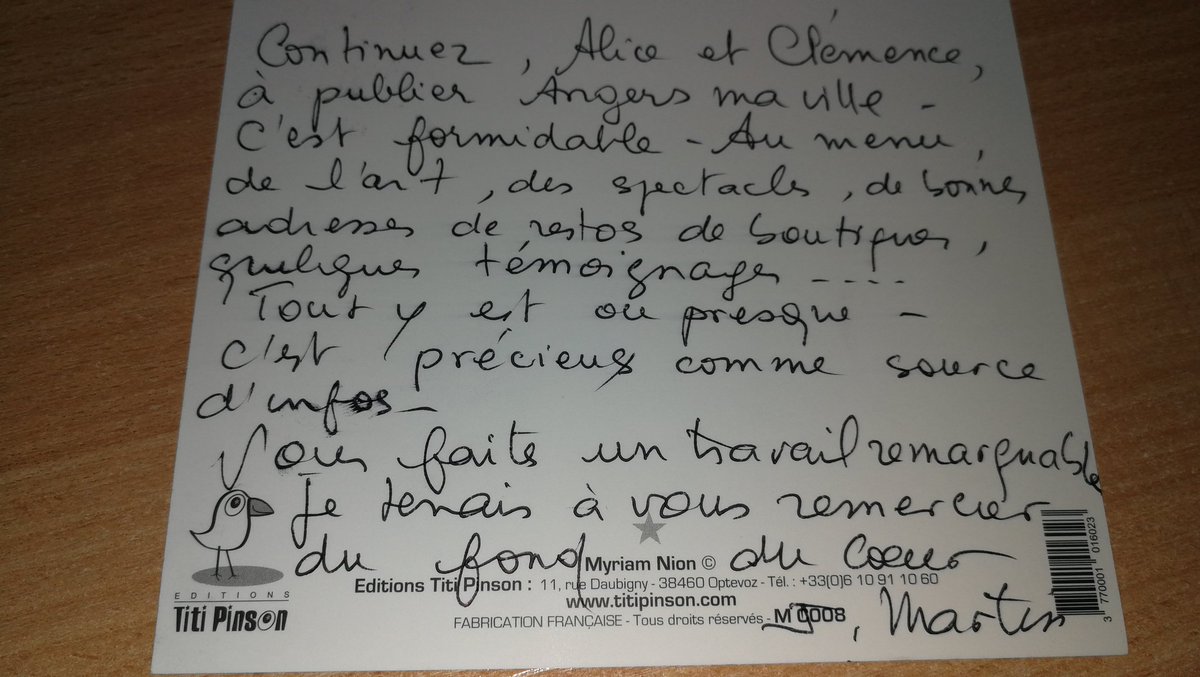 Continuez, Alice et Clémence,
à publier Angers ma ville -
C'est formidable - Au menu,
de l'art, des spectacles, de bonnes
adresses de restos de boutiques,
quelques témoignages .....
Tout y est ou presque -
C'est précieux comme source
d'infos -
Vous faites un travail remarquable
Je tenais à vous remercier
du fond du coeur
Martin
EDITIONS
Titi Pinson
Myriam Nion ©
Editions Titi Pinson : 11, rue Daubigny - 38460 Optevoz - Tél. : +33(0)6 10 91 10 60
www.titipinson.com
FABRICATION FRANÇAISE - Tous droits réservés -
3 770001 016023